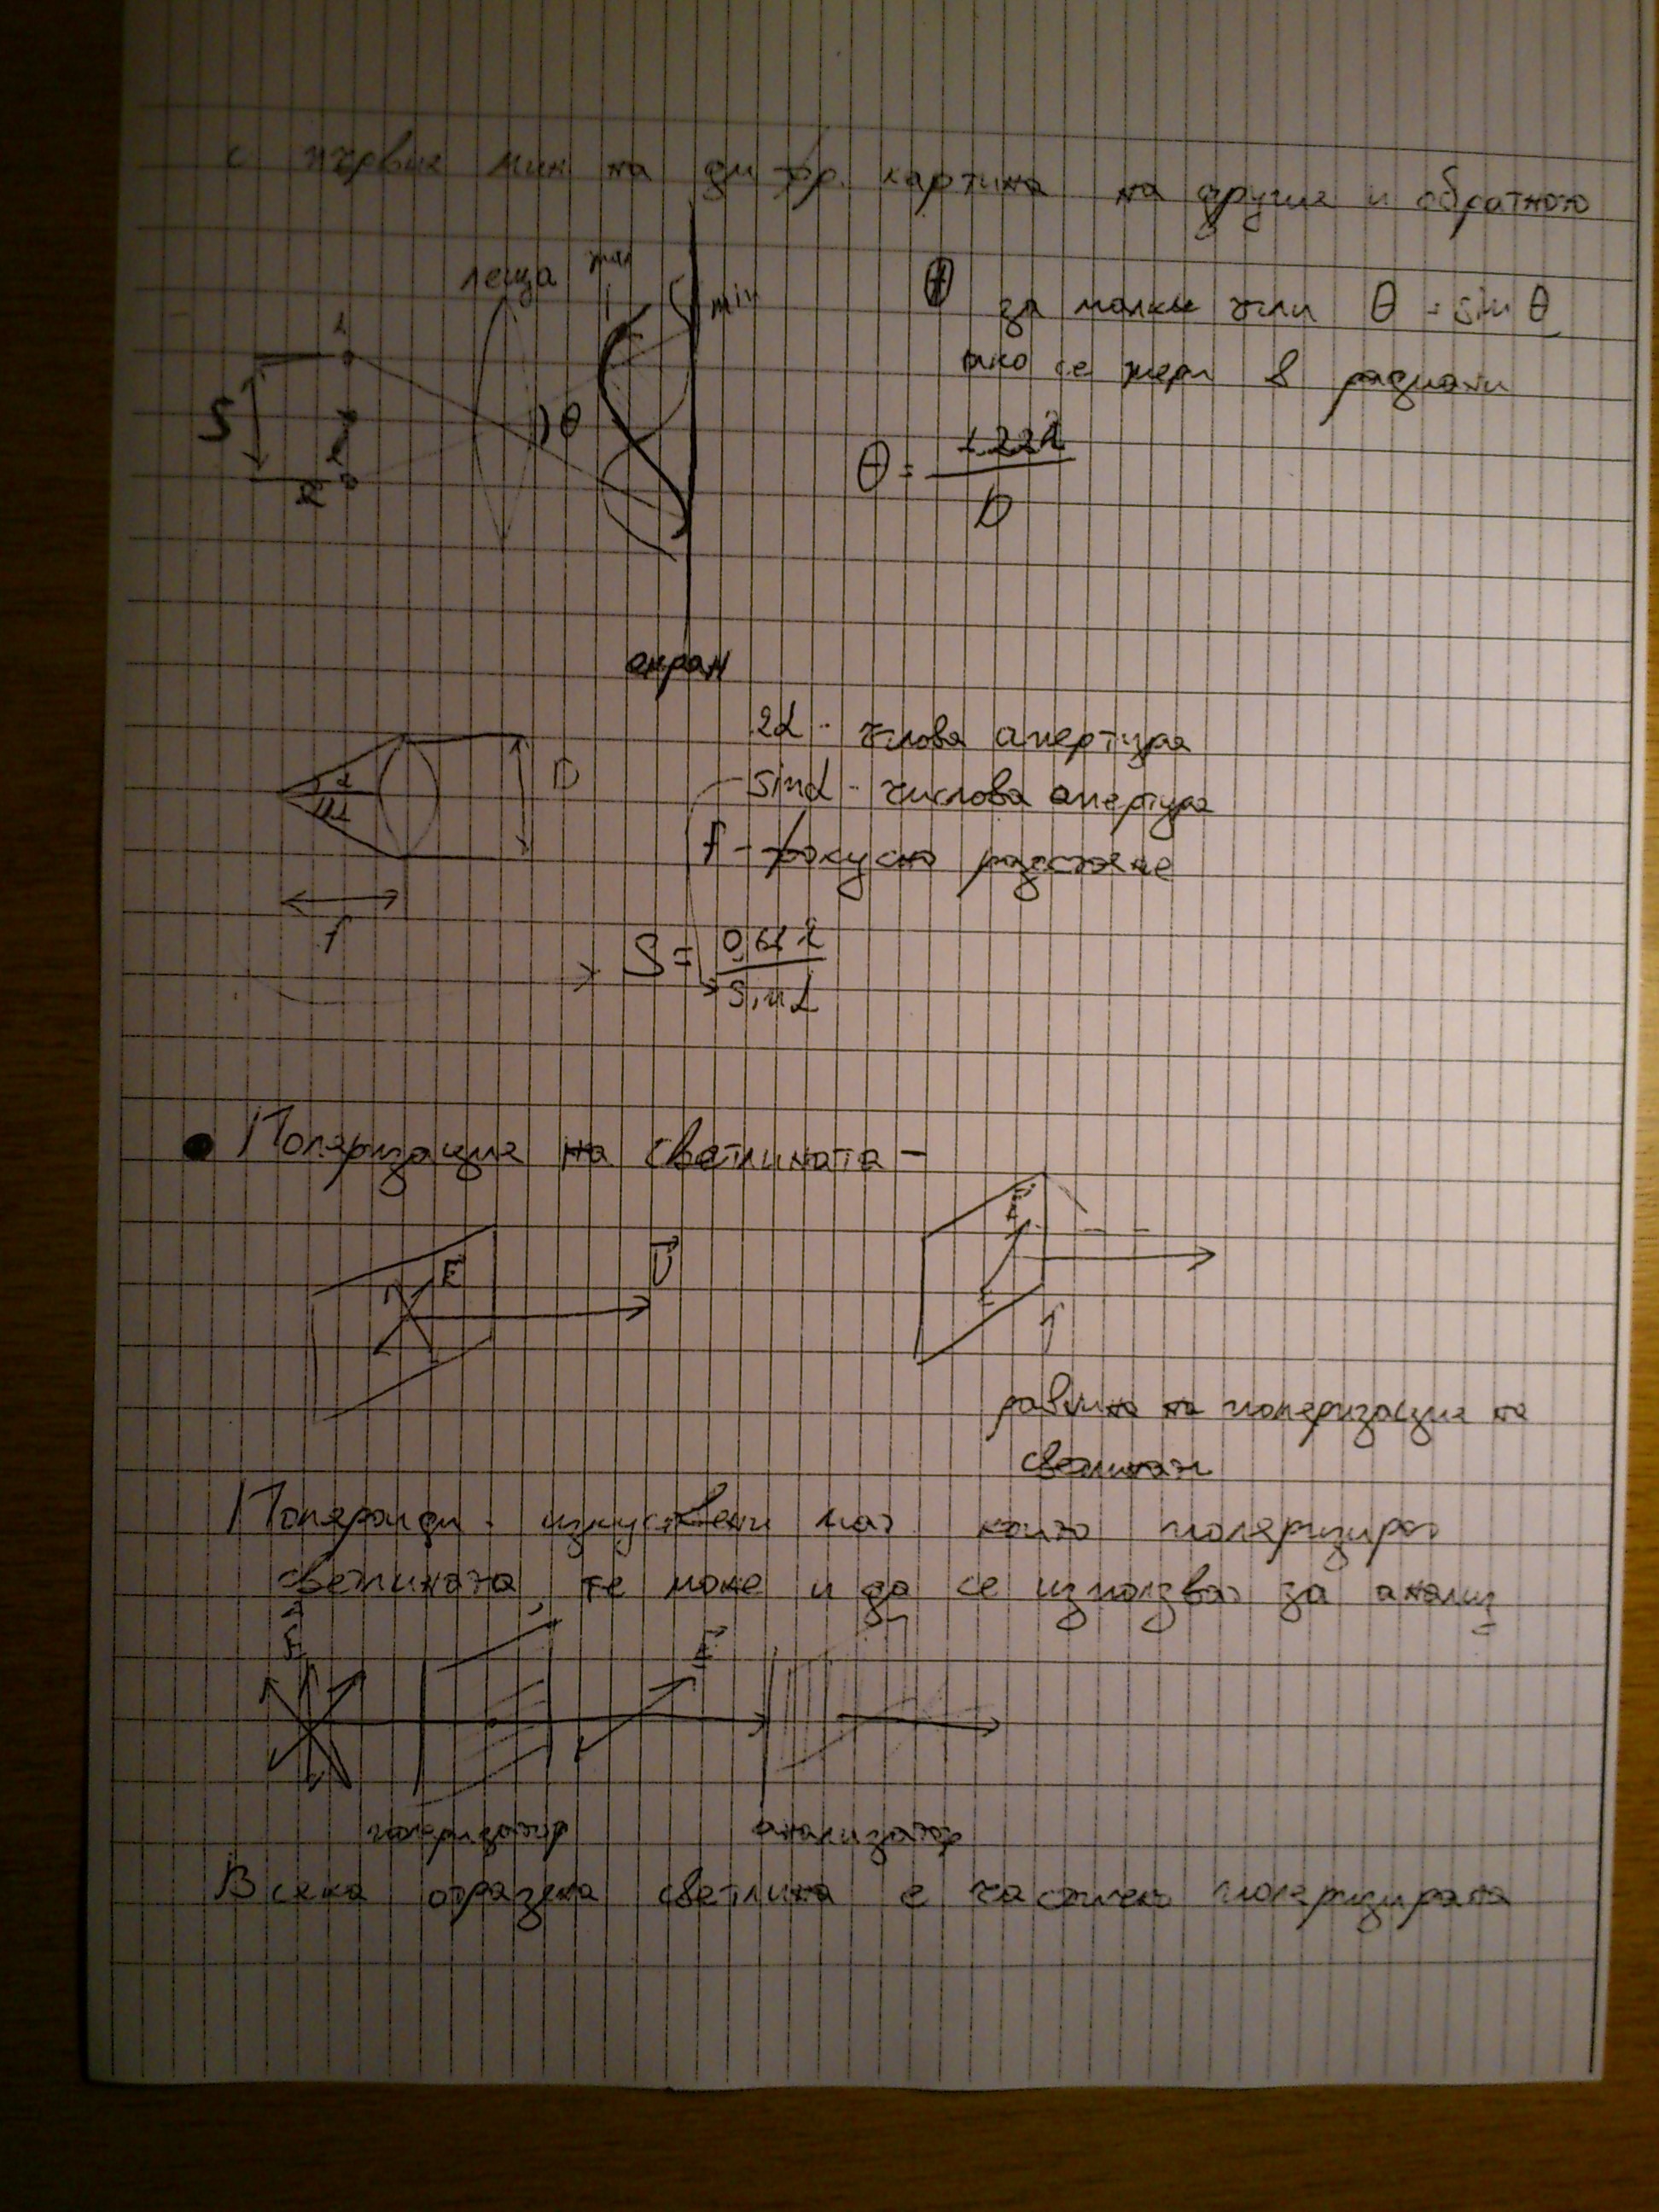 с първия мин на дифр. картина на другия и обратното
леща max min
θ за малки ъгли θ = sin θ
ако се мери в радиани
S θ
θ = 1.22λ / D
екран
2α - ъглова апертура
sinα - числова апертура
f - фокусно разстояние
α D
f
S = 0,61λ / sinα
• Поляризация на светлината -
E
равнина на поляризация на
светлинат
Полароиди - изкуствени мат. които поляризират
светлината, те може и да се използват за анализ
E E
поляризатор анализатор
Всяка отразена светлина е частично поляризирана